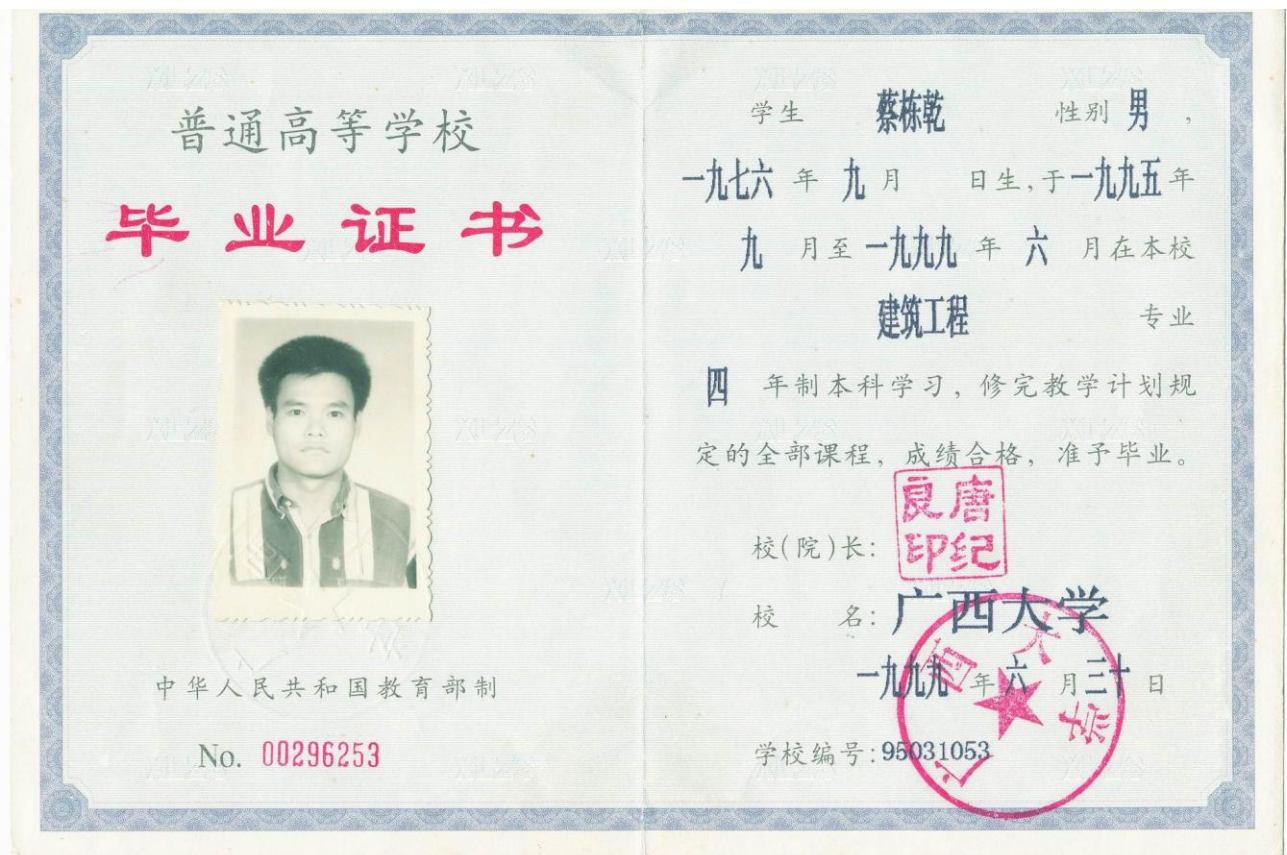 普通高等学校
毕业证书
中华人民共和国教育部制
No. 00296253
学生 蔡栋乾 性别 男，
一九七六 年 九 月 日生，于一九九五年
九 月至 一九九九 年 六 月在本校
建筑工程 专业
四 年制本科学习，修完教学计划规
定的全部课程，成绩合格，准予毕业。
校(院)长：
唐纪良印
校 名：广西大学
一九九九 年 六 月 三十 日
广西大学
学校编号：95031053